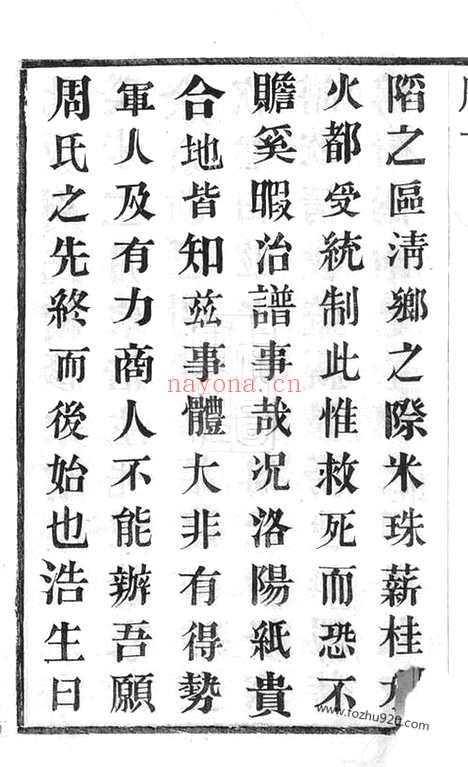 陷之區淸鄉之際米珠薪桂
火都受統制此惟救死而恐不
贍奚暇治譜事哉况洛陽紙貴
合地皆知茲事體大非有得勢
軍人及有力商人不能辦吾願
周氏之先終而後始也浩生曰
nayona.cn
www.fozhu920.com